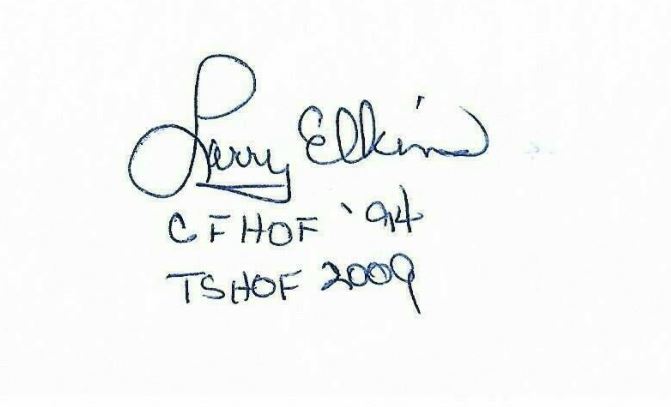 Larry Elkins
CFHOF '94
TSHOF 2009